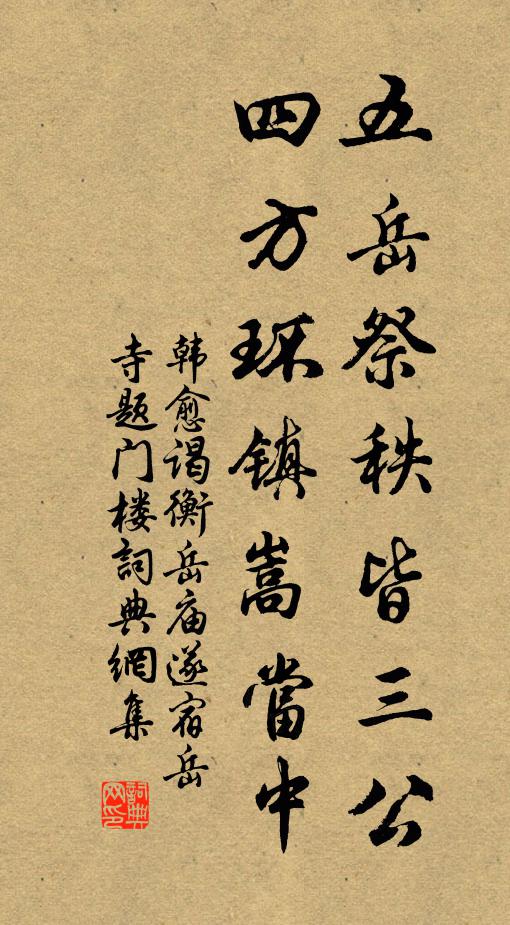 五岳祭秩皆三公
四方环镇嵩當中
韩愈谒衡岳庙遂宿岳
寺题门楼詞典網集
詞典网印